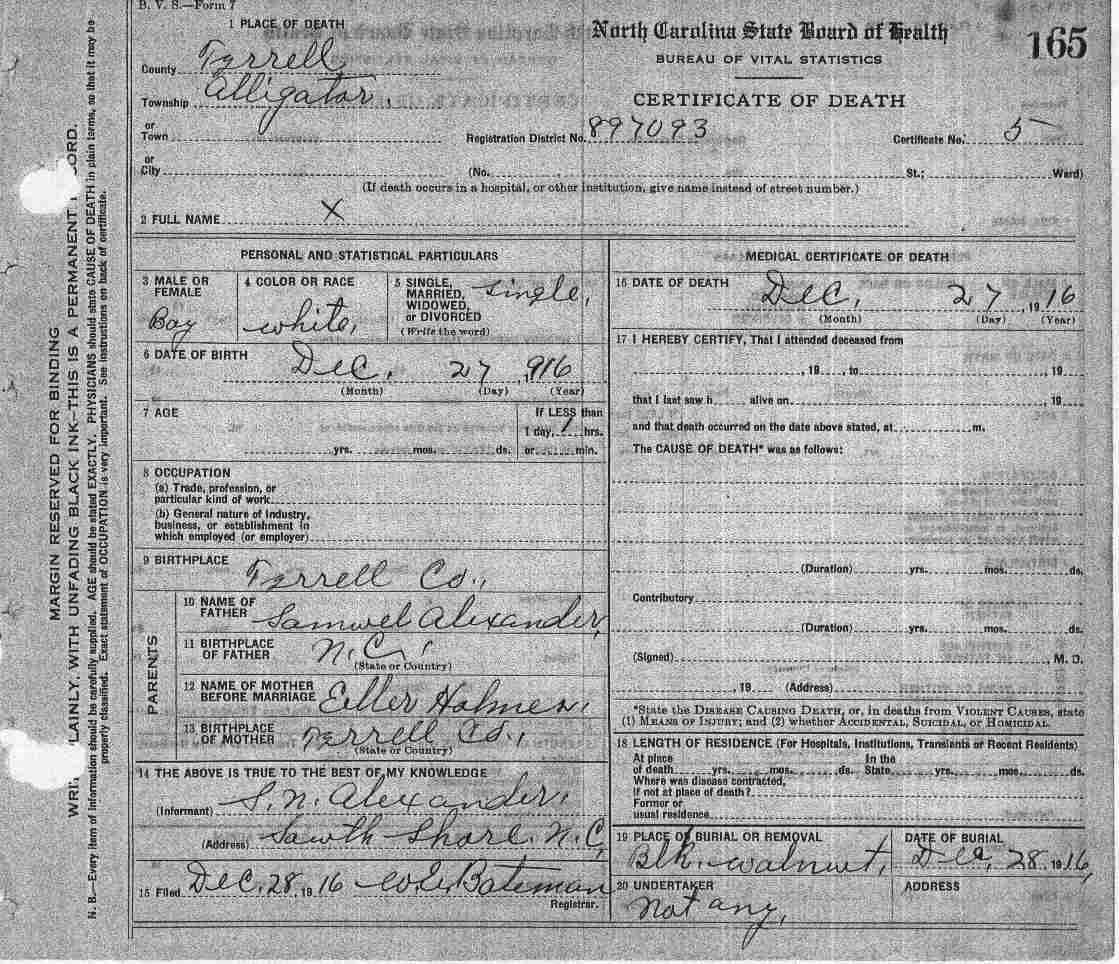 B. V. S.—Form 7
1 PLACE OF DEATH
County Tyrrell
Township Alligator,
or
Town
or
City
North Carolina State Board of Health
BUREAU OF VITAL STATISTICS
CERTIFICATE OF DEATH
165
Registration District No. 897093 Certificate No. 5
(No. St.; Ward)
(If death occurs in a hospital, or other institution, give name instead of street number.)
2 FULL NAME X
PERSONAL AND STATISTICAL PARTICULARS
3 MALE OR
FEMALE
Boy
4 COLOR OR RACE
white,
5 SINGLE,
MARRIED,
WIDOWED,
or DIVORCED
(Write the word)
single,
6 DATE OF BIRTH
Dec, 27, 916
(Month) (Day) (Year)
7 AGE
yrs. mos. ds.
If LESS than
1 day, 1 hrs.
or min.
8 OCCUPATION
(a) Trade, profession, or
particular kind of work
(b) General nature of industry,
business, or establishment in
which employed (or employer)
9 BIRTHPLACE
Tyrrell Co.,
PARENTS
10 NAME OF
FATHER
Samuel Alexander,
11 BIRTHPLACE
OF FATHER
N.C.,
(State or Country)
12 NAME OF MOTHER
BEFORE MARRIAGE
Eller Holmes,
13 BIRTHPLACE
OF MOTHER
Tyrrell Co.,
(State or Country)
14 THE ABOVE IS TRUE TO THE BEST OF MY KNOWLEDGE
(Informant) S. N. Alexander,
(Address) Sawth Shore. N.C,
15 Filed Dec. 28, 1916 Bateman
Registrar.
MEDICAL CERTIFICATE OF DEATH
16 DATE OF DEATH
Dec, 27, 1916
(Month) (Day) (Year)
17 I HEREBY CERTIFY, That I attended deceased from
, 19 , to , 19
that I last saw h alive on , 19
and that death occurred on the date above stated, at m.
The CAUSE OF DEATH* was as follows:
(Duration) yrs. mos. ds.
Contributory
(Duration) yrs. mos. ds.
(Signed) , M. D.
, 19 (Address)
*State the DISEASE CAUSING DEATH, or, in deaths from VIOLENT CAUSES, state
(1) MEANS OF INJURY; and (2) whether ACCIDENTAL, SUICIDAL, or HOMICIDAL.
18 LENGTH OF RESIDENCE (For Hospitals, Institutions, Transients or Recent Residents)
At place In the
of death yrs. mos. ds. State yrs. mos. ds.
Where was disease contracted,
if not at place of death?
Former or
usual residence
19 PLACE OF BURIAL OR REMOVAL
Blk. walnut,
DATE OF BURIAL
Dec, 28, 1916,
20 UNDERTAKER
Not any,
ADDRESS
MARGIN RESERVED FOR BINDING
WRI LAINLY, WITH UNFADING BLACK INK—THIS IS A PERMANENT ORD.
N. B.—Every item of information should be carefully supplied. AGE should be stated EXACTLY. PHYSICIANS should state CAUSE OF DEATH in plain terms, so that it may be
properly classified. Exact statement of OCCUPATION is very important. See instructions on back of certificate.